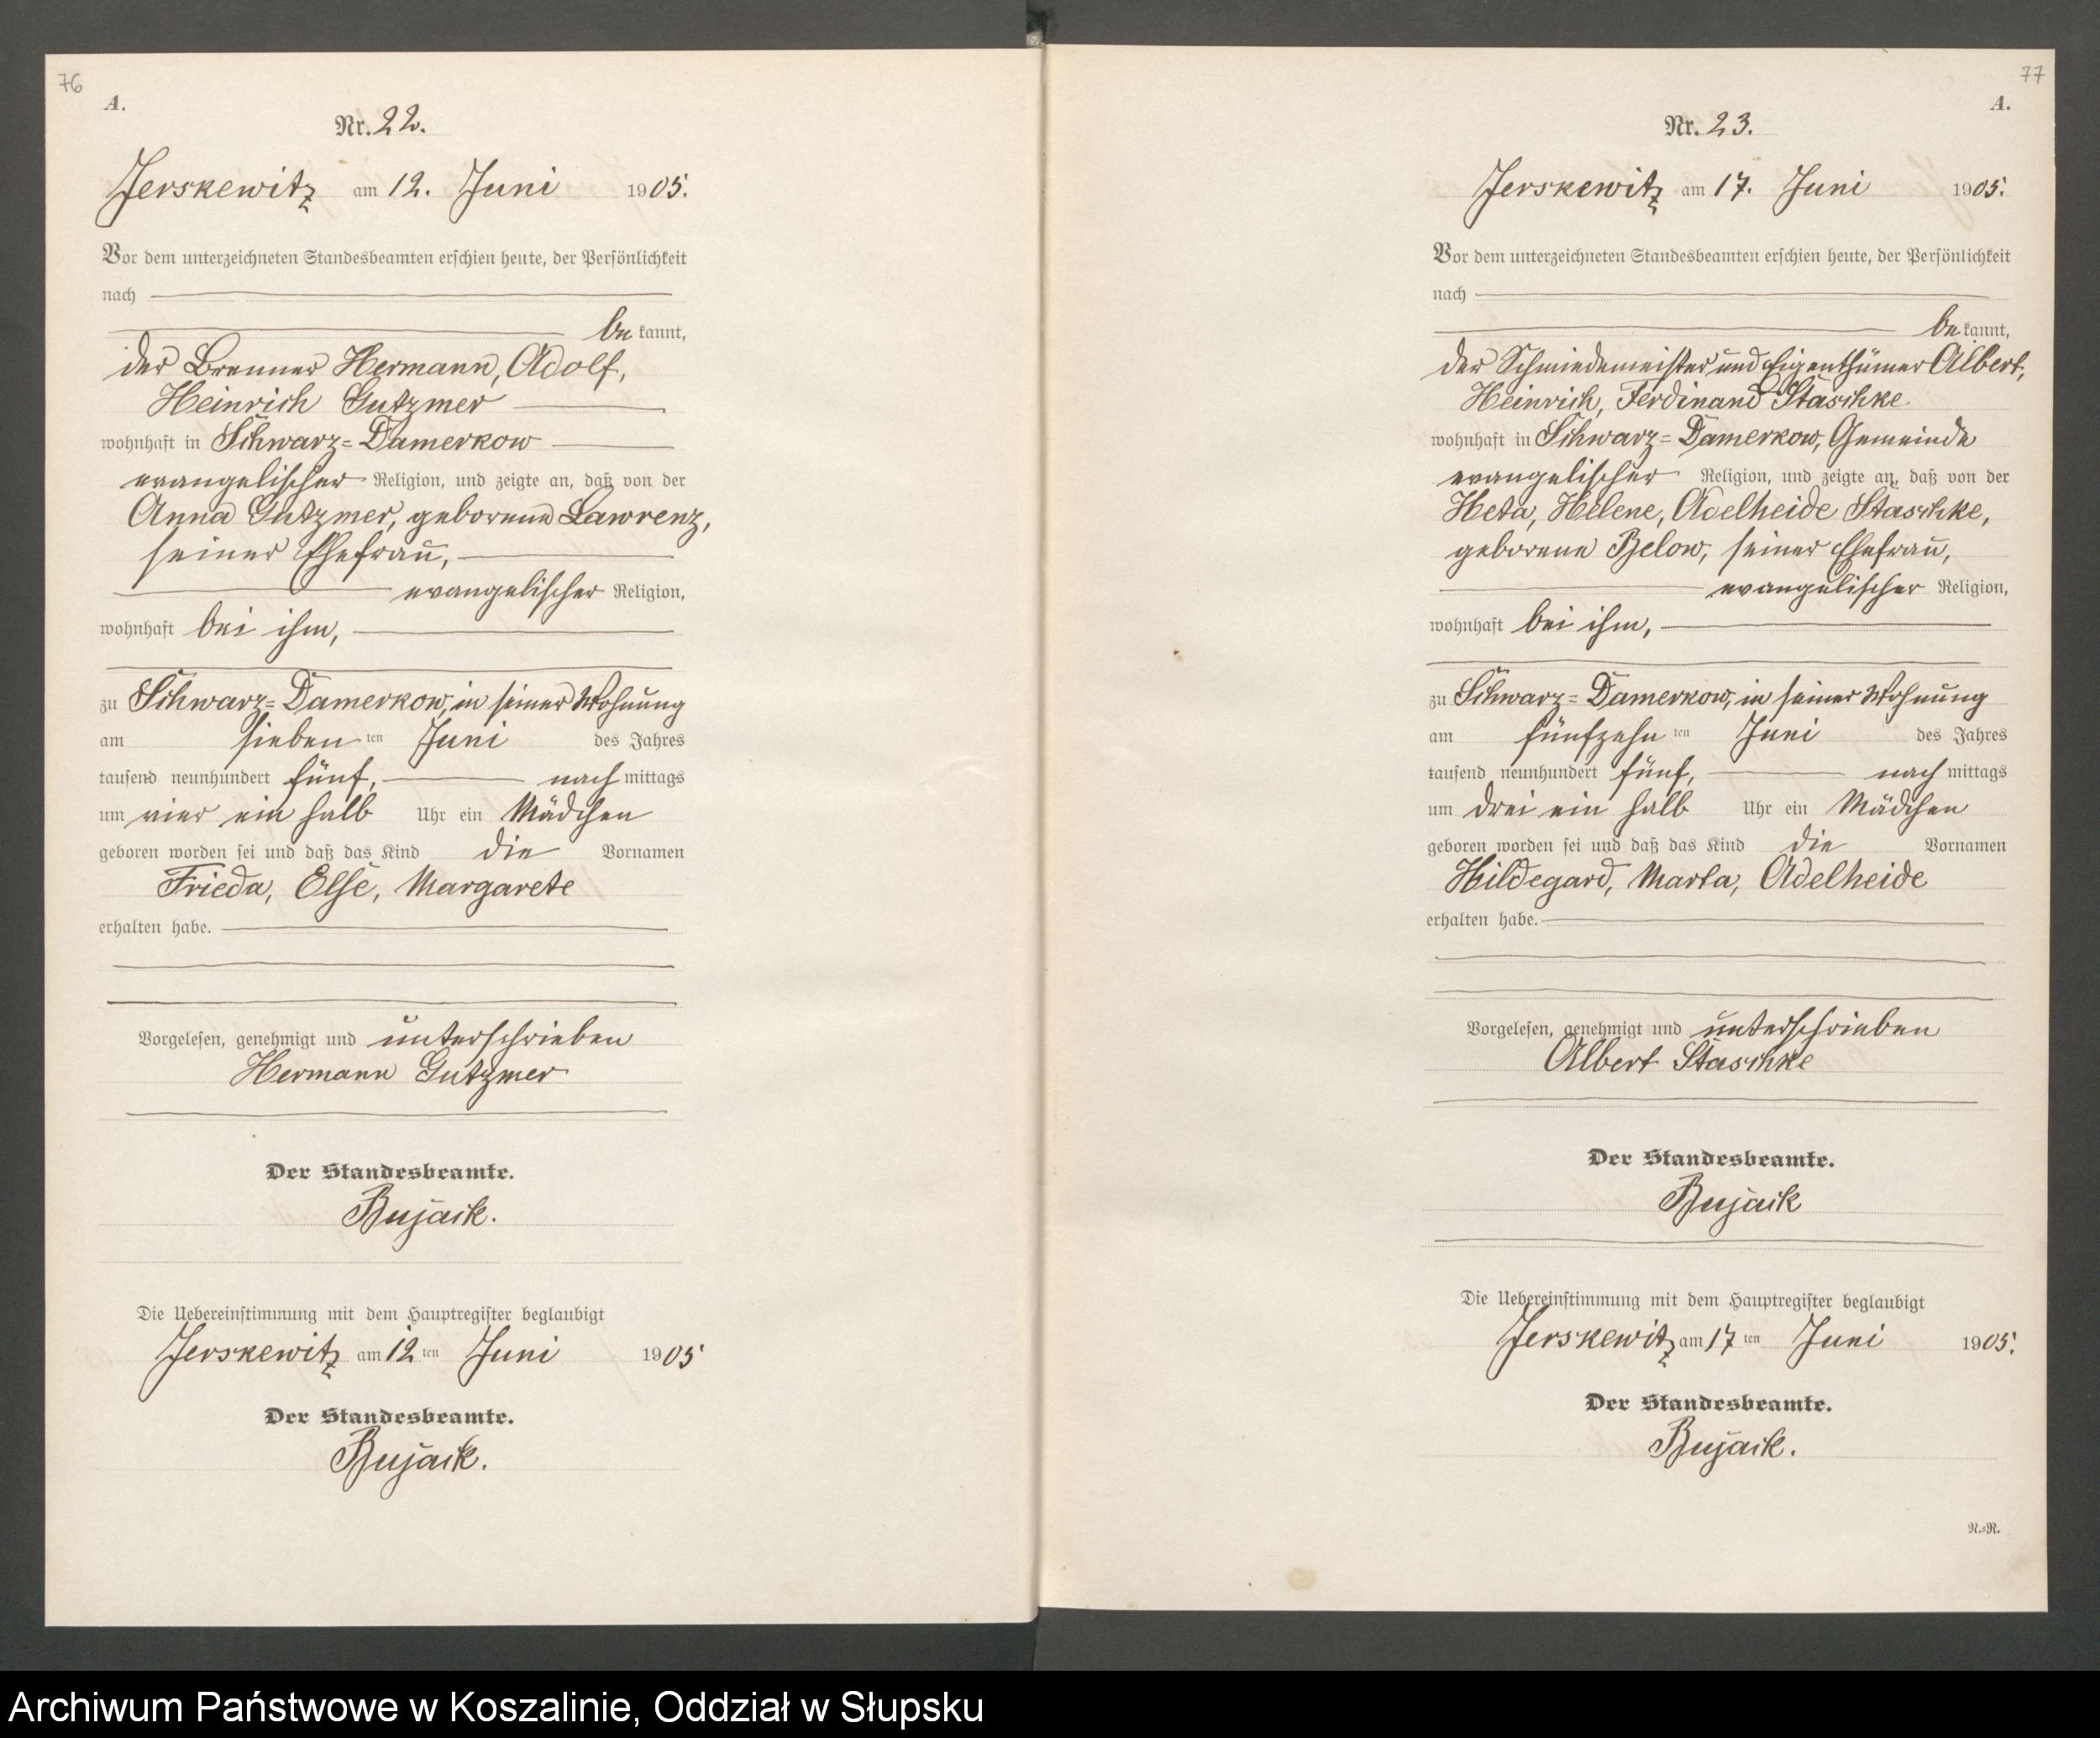 76
A.
Nr. 22.
Jerskewitz am 12. Juni 1905.
Vor dem unterzeichneten Standesbeamten erschien heute, der Persönlichkeit
nach
be kannt,
der Brenner Hermann, Adolf,
Heinrich Gutzmer
wohnhaft in Schwarz=Damerkow
evangelischer Religion, und zeigte an, daß von der
Anna Gutzmer, geborene Lawrenz,
seiner Ehefrau,
evangelischer Religion,
wohnhaft bei ihm,
zu Schwarz=Damerkow, in seiner Wohnung
am sieben ten Juni des Jahres
tausend neunhundert fünf, nach mittags
um vier ein halb Uhr ein Mädchen
geboren worden sei und daß das Kind die Vornamen
Frieda, Else, Margarete
erhalten habe.
Vorgelesen, genehmigt und unterschrieben
Hermann Gutzmer
Der Standesbeamte.
Bujack.
Die Uebereinstimmung mit dem Hauptregister beglaubigt
Jerskewitz am 12 ten Juni 1905
Der Standesbeamte.
Bujack.
77
A.
Nr. 23.
Jerskewitz am 17. Juni 1905.
Vor dem unterzeichneten Standesbeamten erschien heute, der Persönlichkeit
nach
be kannt,
der Schmiedemeister und Eigenthümer Albert,
Heinrich, Ferdinand Staschke
wohnhaft in Schwarz=Damerkow, Gemeinde
evangelischer Religion, und zeigte an, daß von der
Heta, Helene, Adelheide Staschke,
geborene Below, seiner Ehefrau,
evangelischer Religion,
wohnhaft bei ihm,
zu Schwarz=Damerkow, in seiner Wohnung
am fünfzehn ten Juni des Jahres
tausend neunhundert fünf, nach mittags
um drei ein halb Uhr ein Mädchen
geboren worden sei und daß das Kind die Vornamen
Hildegard, Marta, Adelheide
erhalten habe.
Vorgelesen, genehmigt und unterschrieben
Albert Staschke
Der Standesbeamte.
Bujack
Die Uebereinstimmung mit dem Hauptregister beglaubigt
Jerskewitz am 17 ten Juni 1905.
Der Standesbeamte.
Bujack.
N.=N.
Archiwum Państwowe w Koszalinie, Oddział w Słupsku